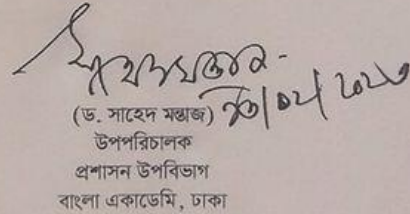 (ড. সাহেদ মন্তাজ)
উপপরিচালক
প্রশাসন উপবিভাগ
বাংলা একাডেমি, ঢাকা